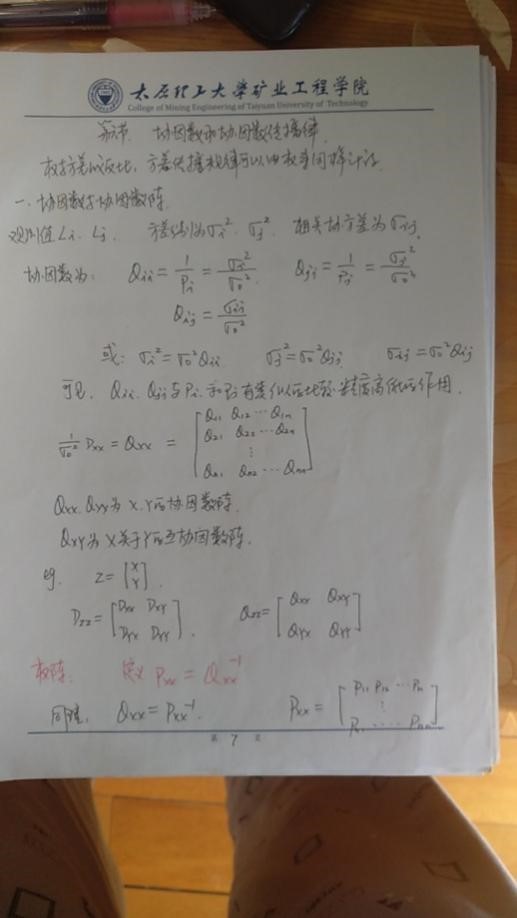 太原理工大学矿业工程学院
College of Mining Engineering of Taiyuan University of Technology
第六节 协因数和协因数传播律
权与方差成反比,方差传播规律可以由权来同样讨论
一、协因数与协因数阵.
观测值 Li、Lj, 方差分别为 σi², σj², 相关协方差为 σij,
协因数为: Qii = 1/Pi = σi²/σ0² Qjj = 1/Pj = σj²/σ0²
Qij = σij/σ0²
或: σi² = σ0²Qii σj² = σ0²Qjj σij = σ0²Qij
可见, Qii、Qjj 与 Pi 和 Pj 有类似的比较精度高低的作用.
1/σ0² Dxx = Qxx = [Q11 Q12 ⋯ Q1n
Q21 Q22 ⋯ Q2n
⋮
Qn1 Qn2 ⋯ Qnn]
Qxx、Qyy 为 X、Y 的协因数阵.
Qxy 为 X 关于 Y 的互协因数阵.
Z = [X
Y].
Dzz = [Dxx Dxy
Dyx Dyy], Qzz = [Qxx Qxy
Qyx Qyy]
权阵: 定义 Pxx = Qxx⁻¹
同理, Qxx = Pxx⁻¹. Pxx = [P11 P12 ⋯ P1n
⋮
⋯ Pnn]
第 7 页